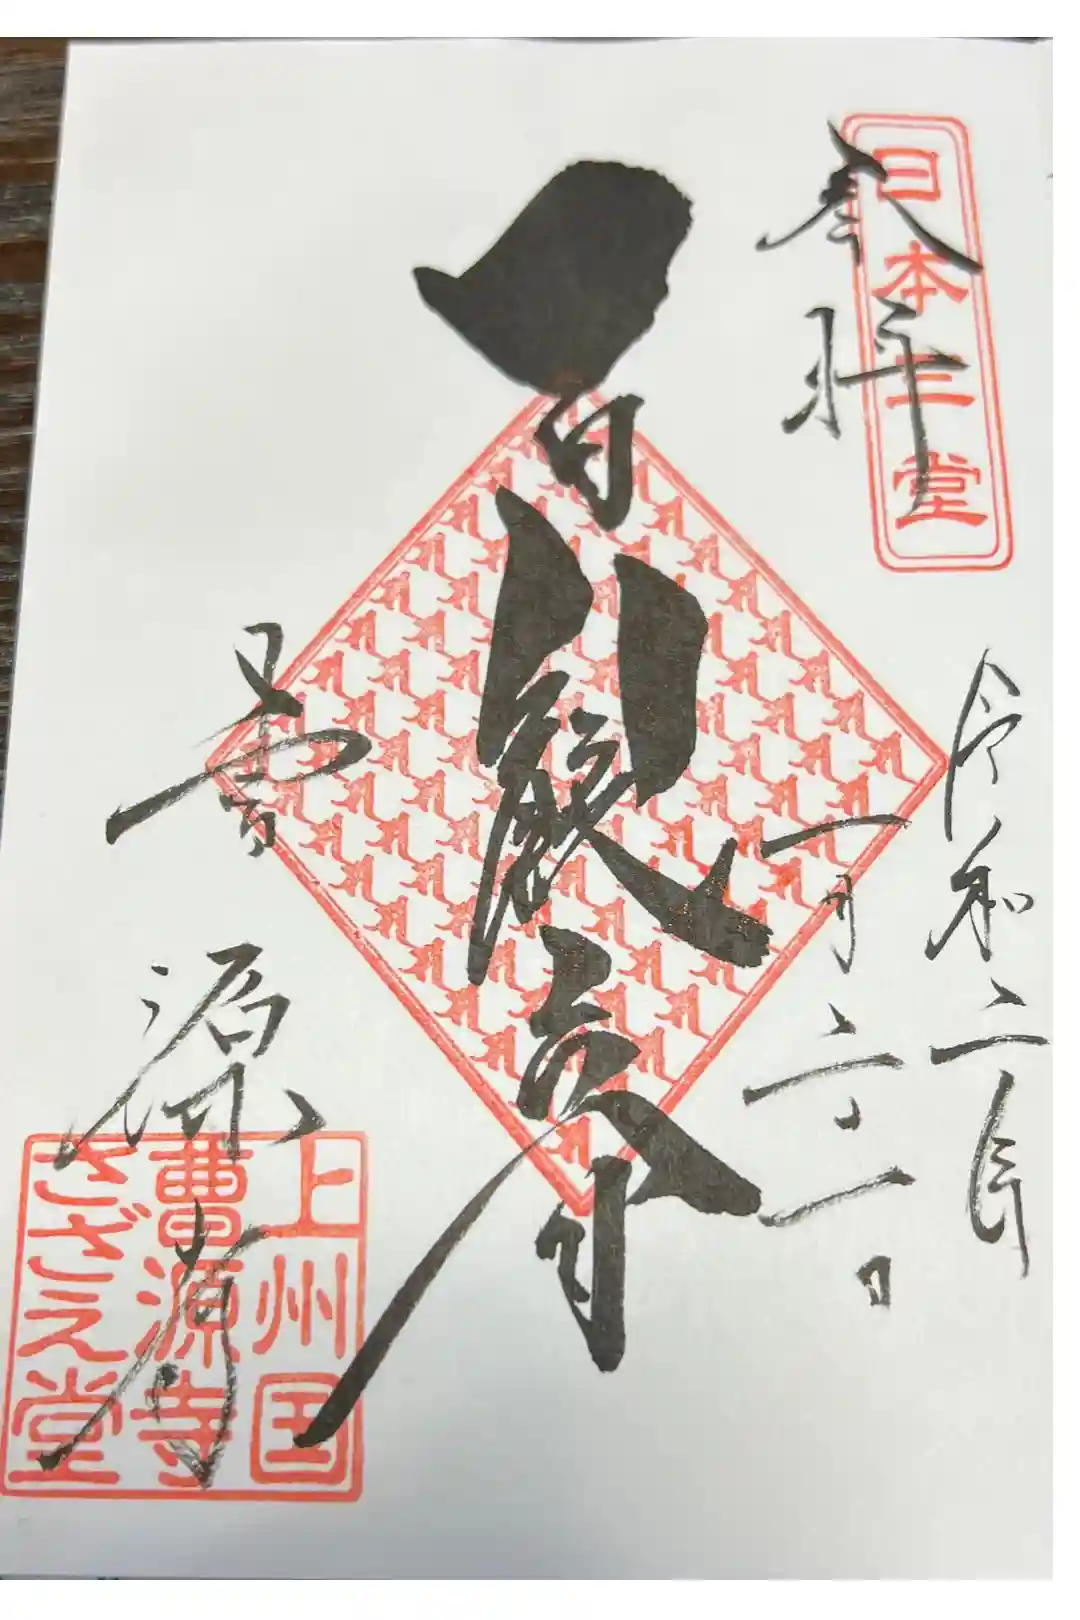 日本三堂
奉拝
令和二年
一月二二日
百観音
曹源寺
上州国
曹源寺
さざえ堂